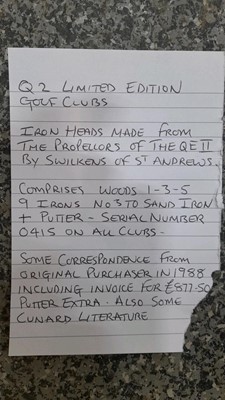 Q2 LIMITED EDITION
GOLF CLUBS
IRON HEADS MADE FROM
THE PROPELLORS OF THE QE II
BY SWILKENS OF ST ANDREWS.
COMPRISES WOODS 1-3-5
9 IRONS NO3 TO SAND IRON
+ PUTTER - SERIAL NUMBER
0415 ON ALL CLUBS -
SOME CORRESPONDENCE FROM
ORIGINAL PURCHASER IN 1988
INCLUDING INVOICE FOR £877-50
PUTTER EXTRA. ALSO SOME
CUNARD LITERATURE